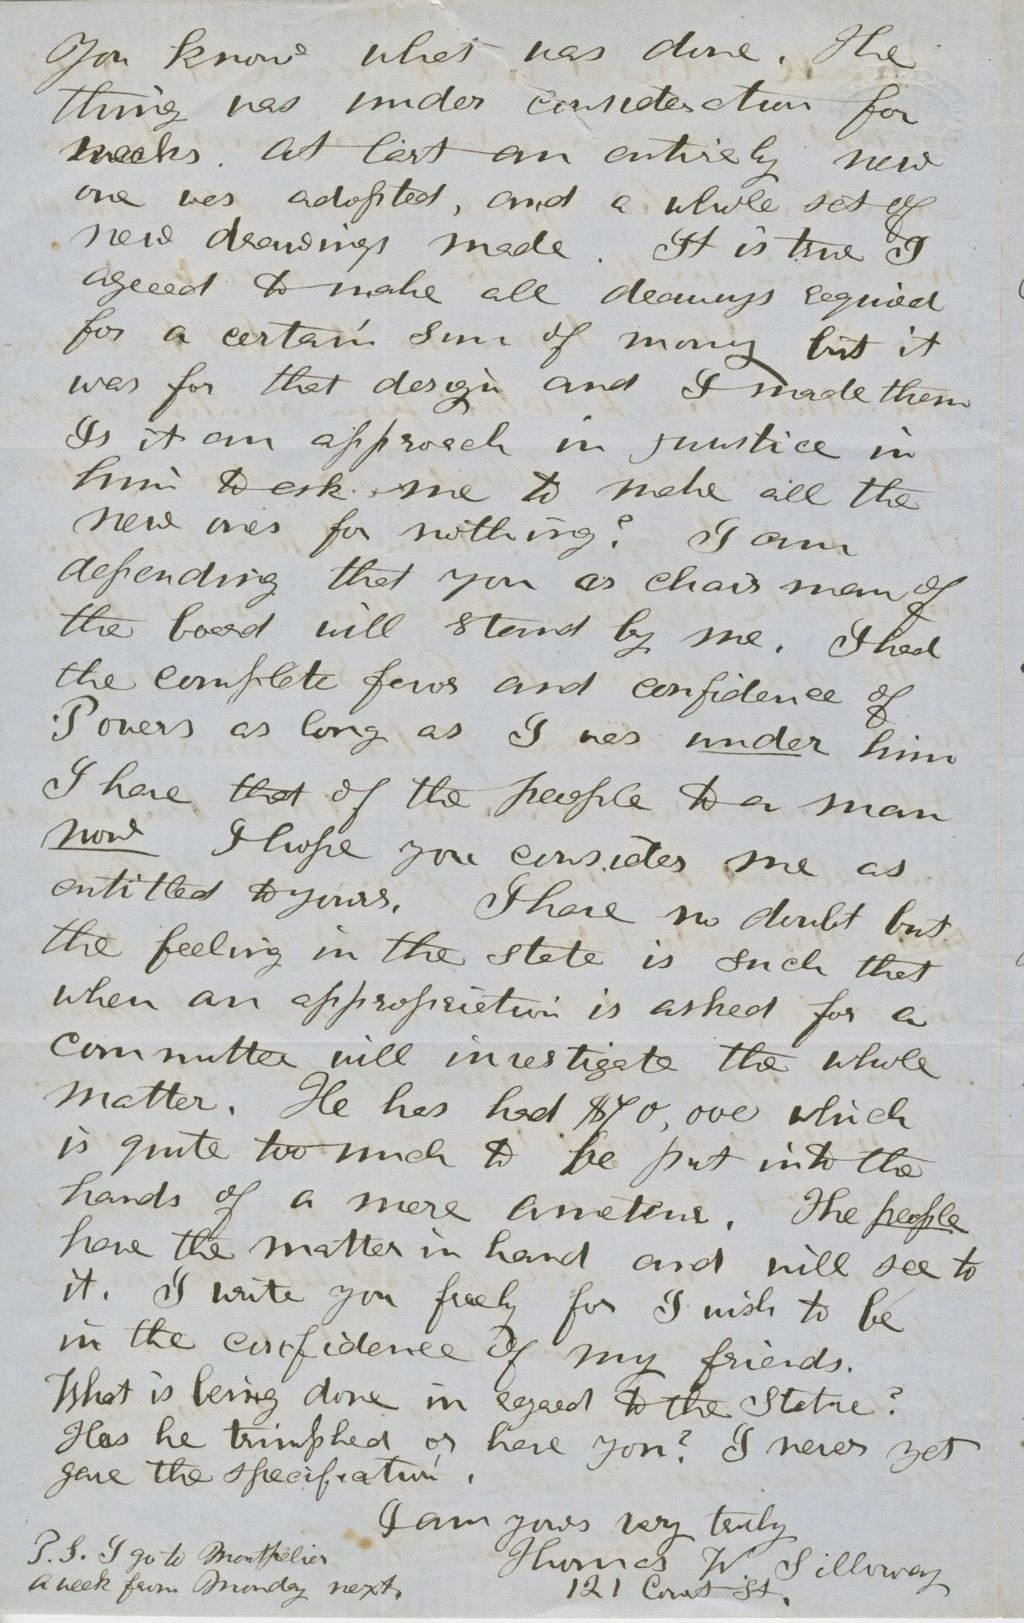 You know what was done. The
thing was under consideration for
weeks. At last an entirely new
one was adopted, and a whole set of
new drawings made. It is true I
agreed to make all drawings required
for a certain sum of money but it
was for that design and I made them
Is it an approach in justice in
him to ask me to make all the
new ones for nothing? I am
depending that you as chairman of
the board will stand by me. I had
the complete favor and confidence of
Powers as long as I was under him
I have that of the people to a man
now I hope you consider me as
entitled to yours. I have no doubt but
the feeling in the state is such that
when an appropriation is asked for a
committee will investigate the whole
matter. He has had $70,000 which
is quite too much to be put into the
hands of a mere ameteur. The people
have the matter in hand and will see to
it. I write you freely for I wish to be
in the confidence of my friends.
What is being done in regard to the Statue?
Has he trimphed or have you? I never yet
gave the specification.
I am yours very truly
Thomas W Silloway
121 Court St.
P.S. I go to Montpelier
a week from Monday next.